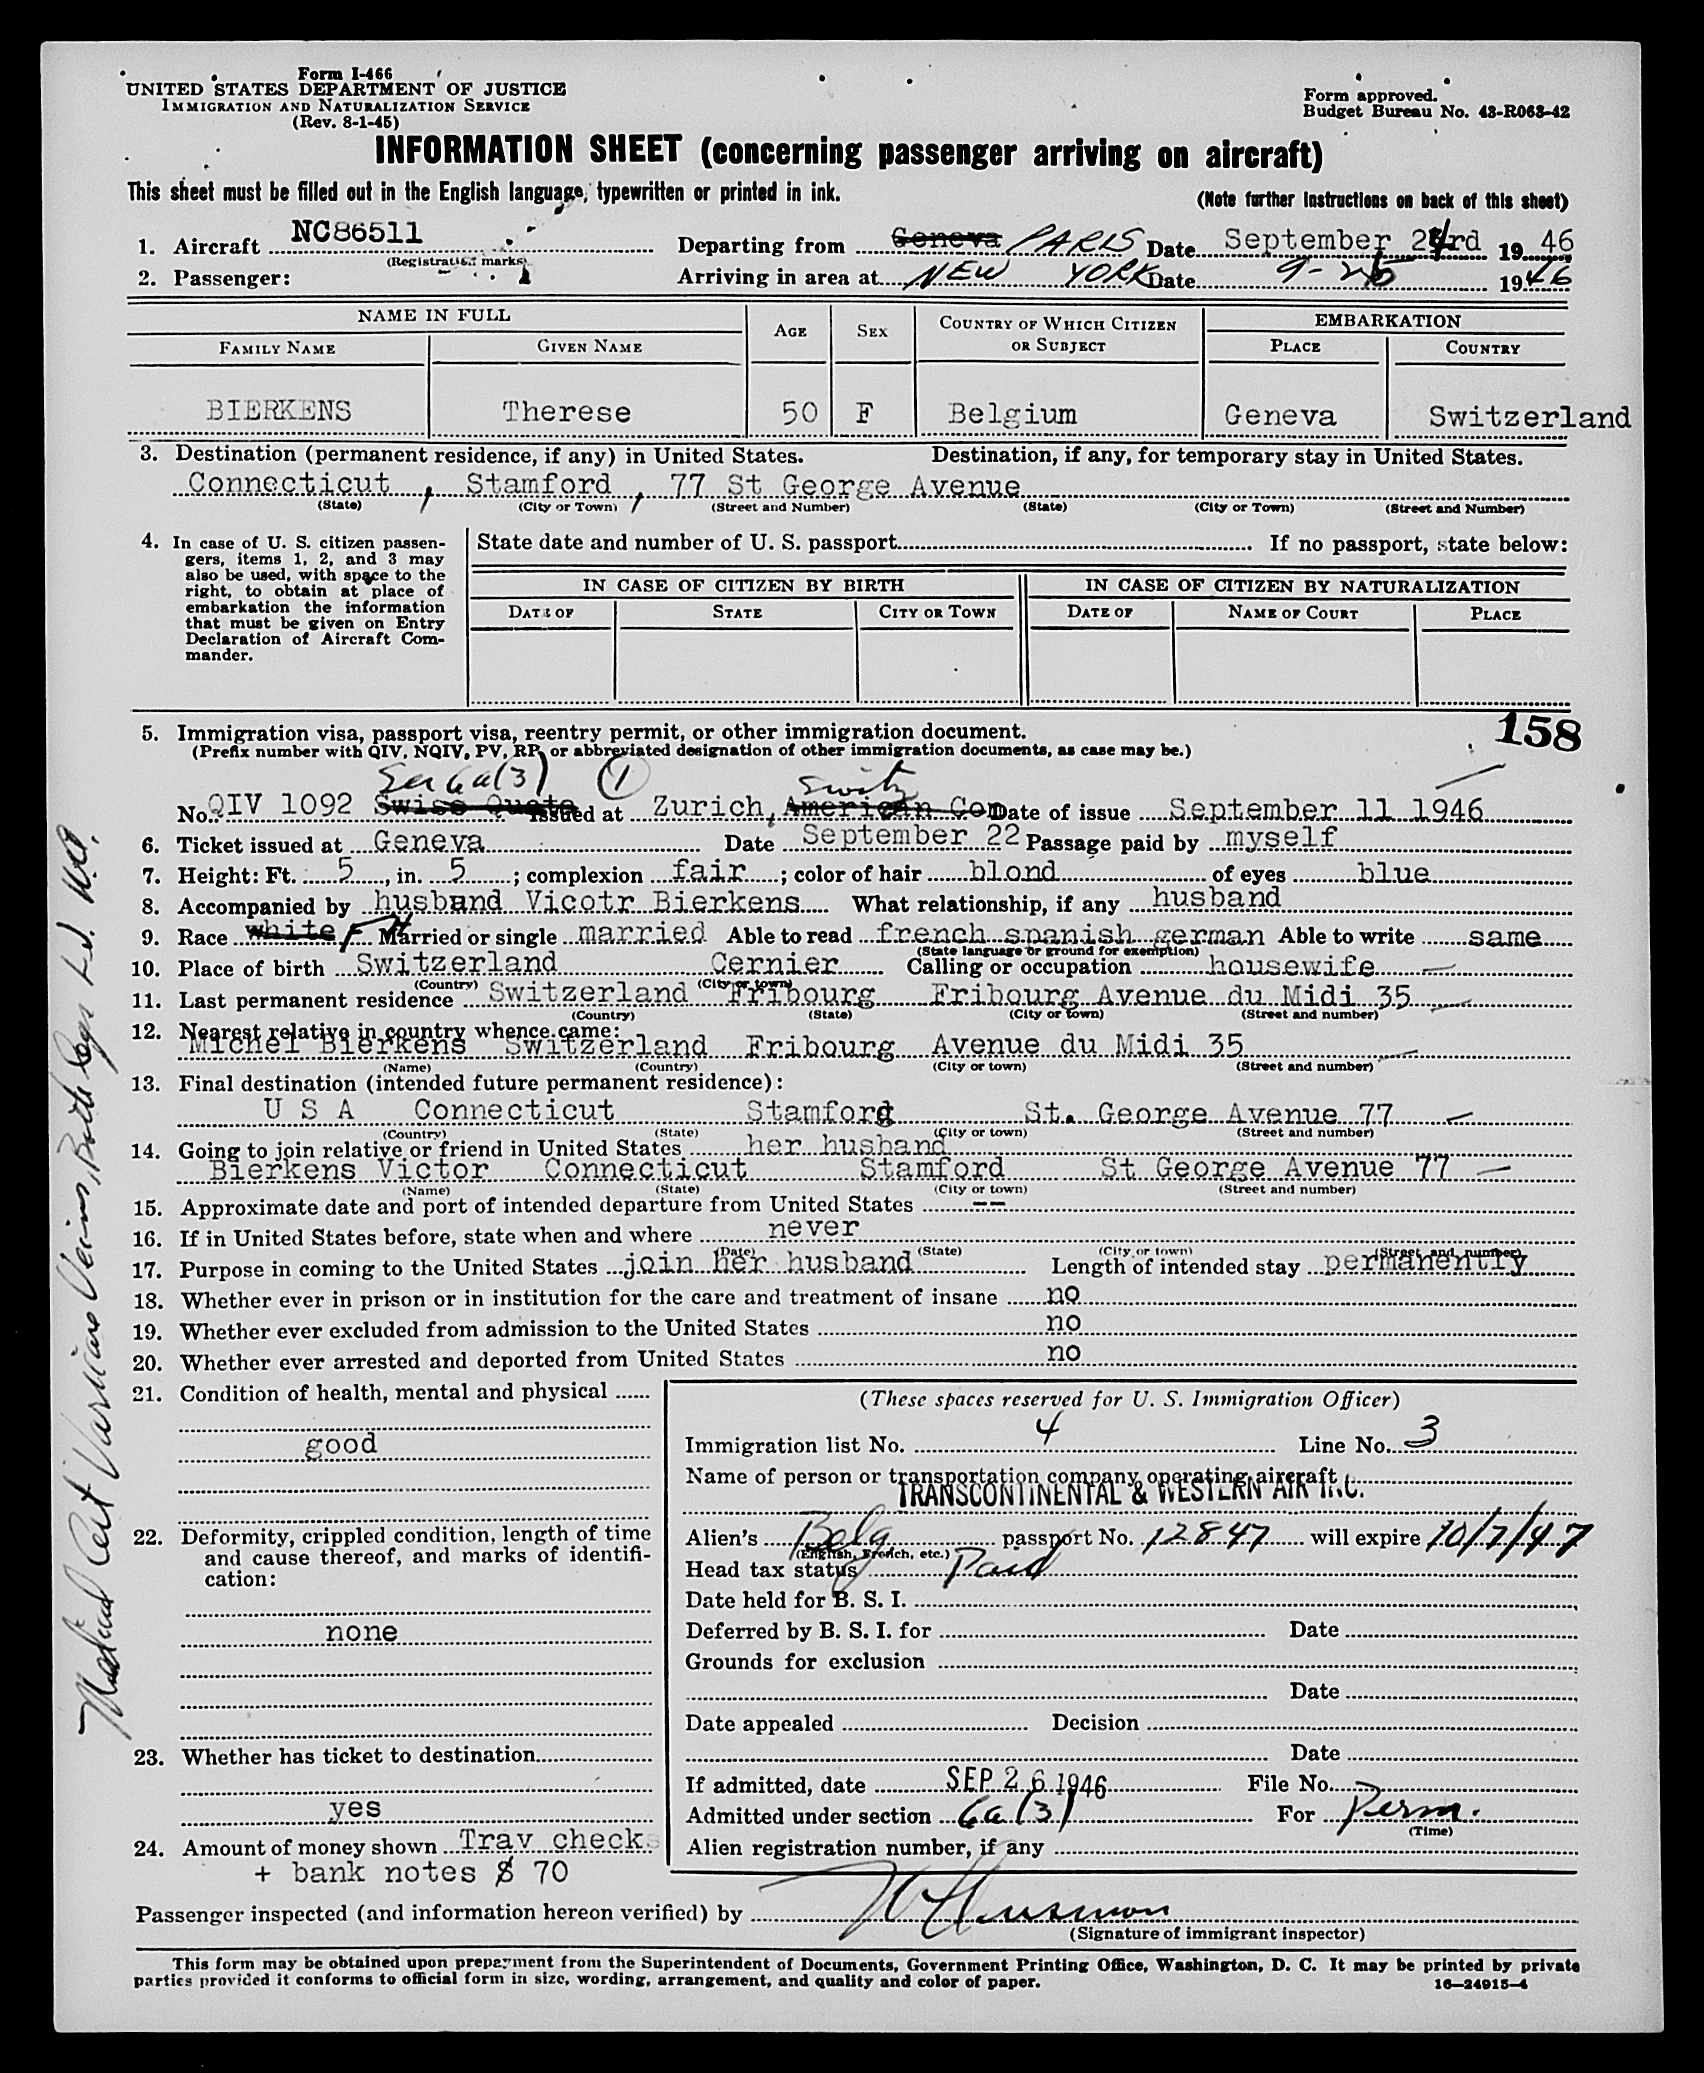 Form I-466
UNITED STATES DEPARTMENT OF JUSTICE
IMMIGRATION AND NATURALIZATION SERVICE
(Rev. 8-1-45)
Form approved.
Budget Bureau No. 43-R063-42
INFORMATION SHEET (concerning passenger arriving on aircraft)
This sheet must be filled out in the English language, typewritten or printed in ink.
(Note further instructions on back of this sheet)
1. Aircraft NC86511 Departing from Geneva PARIS Date September 24rd 19 46
(Registration marks)
2. Passenger: Arriving in area at NEW YORK Date 9-25 1946
NAME IN FULL AGE SEX COUNTRY OF WHICH CITIZEN OR SUBJECT EMBARKATION
FAMILY NAME GIVEN NAME PLACE COUNTRY
BIERKENS Therese 50 F Belgium Geneva Switzerland
3. Destination (permanent residence, if any) in United States. Destination, if any, for temporary stay in United States.
Connecticut , Stamford , 77 St George Avenue
(State) (City or Town) (Street and Number) (State) (City or Town) (Street and Number)
4. In case of U. S. citizen passen-
gers, items 1, 2, and 3 may
also be used, with space to the
right, to obtain at place of
embarkation the information
that must be given on Entry
Declaration of Aircraft Com-
mander.
State date and number of U. S. passport If no passport, state below:
IN CASE OF CITIZEN BY BIRTH IN CASE OF CITIZEN BY NATURALIZATION
DATE OF STATE CITY OR TOWN DATE OF NAME OF COURT PLACE
158
5. Immigration visa, passport visa, reentry permit, or other immigration document.
(Prefix number with QIV, NQIV, PV, RP, or abbreviated designation of other immigration documents, as case may be.)
Sec 6a(3) 1 Switz
No. QIV 1092 Swiss Quota Issued at Zurich, American Con Date of issue September 11 1946
6. Ticket issued at Geneva Date September 22 Passage paid by myself
7. Height: Ft. 5, in. 5; complexion fair; color of hair blond of eyes blue
8. Accompanied by husband Vicotr Bierkens What relationship, if any husband
9. Race white F Married or single married Able to read french spanish german Able to write same
(State language or ground for exemption)
10. Place of birth Switzerland Cernier Calling or occupation housewife
(Country) (City or town)
11. Last permanent residence Switzerland Fribourg Fribourg Avenue du Midi 35
(Country) (State) (City or town) (Street and number)
12. Nearest relative in country whence came:
Michel Bierkens Switzerland Fribourg Avenue du Midi 35
(Name) (Country) (City or town) (Street and number)
13. Final destination (intended future permanent residence):
U S A Connecticut Stamford St. George Avenue 77
(Country) (State) (City or town) (Street and number)
14. Going to join relative or friend in United States her husband
Bierkens Victor Connecticut Stamford St George Avenue 77
(Name) (State) (City or town) (Street and number)
15. Approximate date and port of intended departure from United States --
16. If in United States before, state when and where never
(Date) (State) (City or town) (Street and number)
17. Purpose in coming to the United States join her husband Length of intended stay permanently
18. Whether ever in prison or in institution for the care and treatment of insane no
19. Whether ever excluded from admission to the United States no
20. Whether ever arrested and deported from United States no
21. Condition of health, mental and physical
good
22. Deformity, crippled condition, length of time
and cause thereof, and marks of identifi-
cation:
none
23. Whether has ticket to destination
yes
24. Amount of money shown Trav checks
+ bank notes $ 70
(These spaces reserved for U. S. Immigration Officer)
Immigration list No. 4 Line No. 3
Name of person or transportation company operating aircraft
TRANSCONTINENTAL & WESTERN AIR INC.
Alien's Belg passport No. 12847 will expire 10/7/47
(English, French, etc.)
Head tax status Paid
Date held for B. S. I.
Deferred by B. S. I. for Date
Grounds for exclusion
Date
Date appealed Decision
Date
If admitted, date SEP 26 1946 File No.
Admitted under section 6a(3) For Perm.
(Time)
Alien registration number, if any
Passenger inspected (and information hereon verified) by
(Signature of immigrant inspector)
This form may be obtained upon prepayment from the Superintendent of Documents, Government Printing Office, Washington, D. C. It may be printed by private
parties provided it conforms to official form in size, wording, arrangement, and quality and color of paper.
16—24915-4
Medical Cert Varicose Veins, Both legs